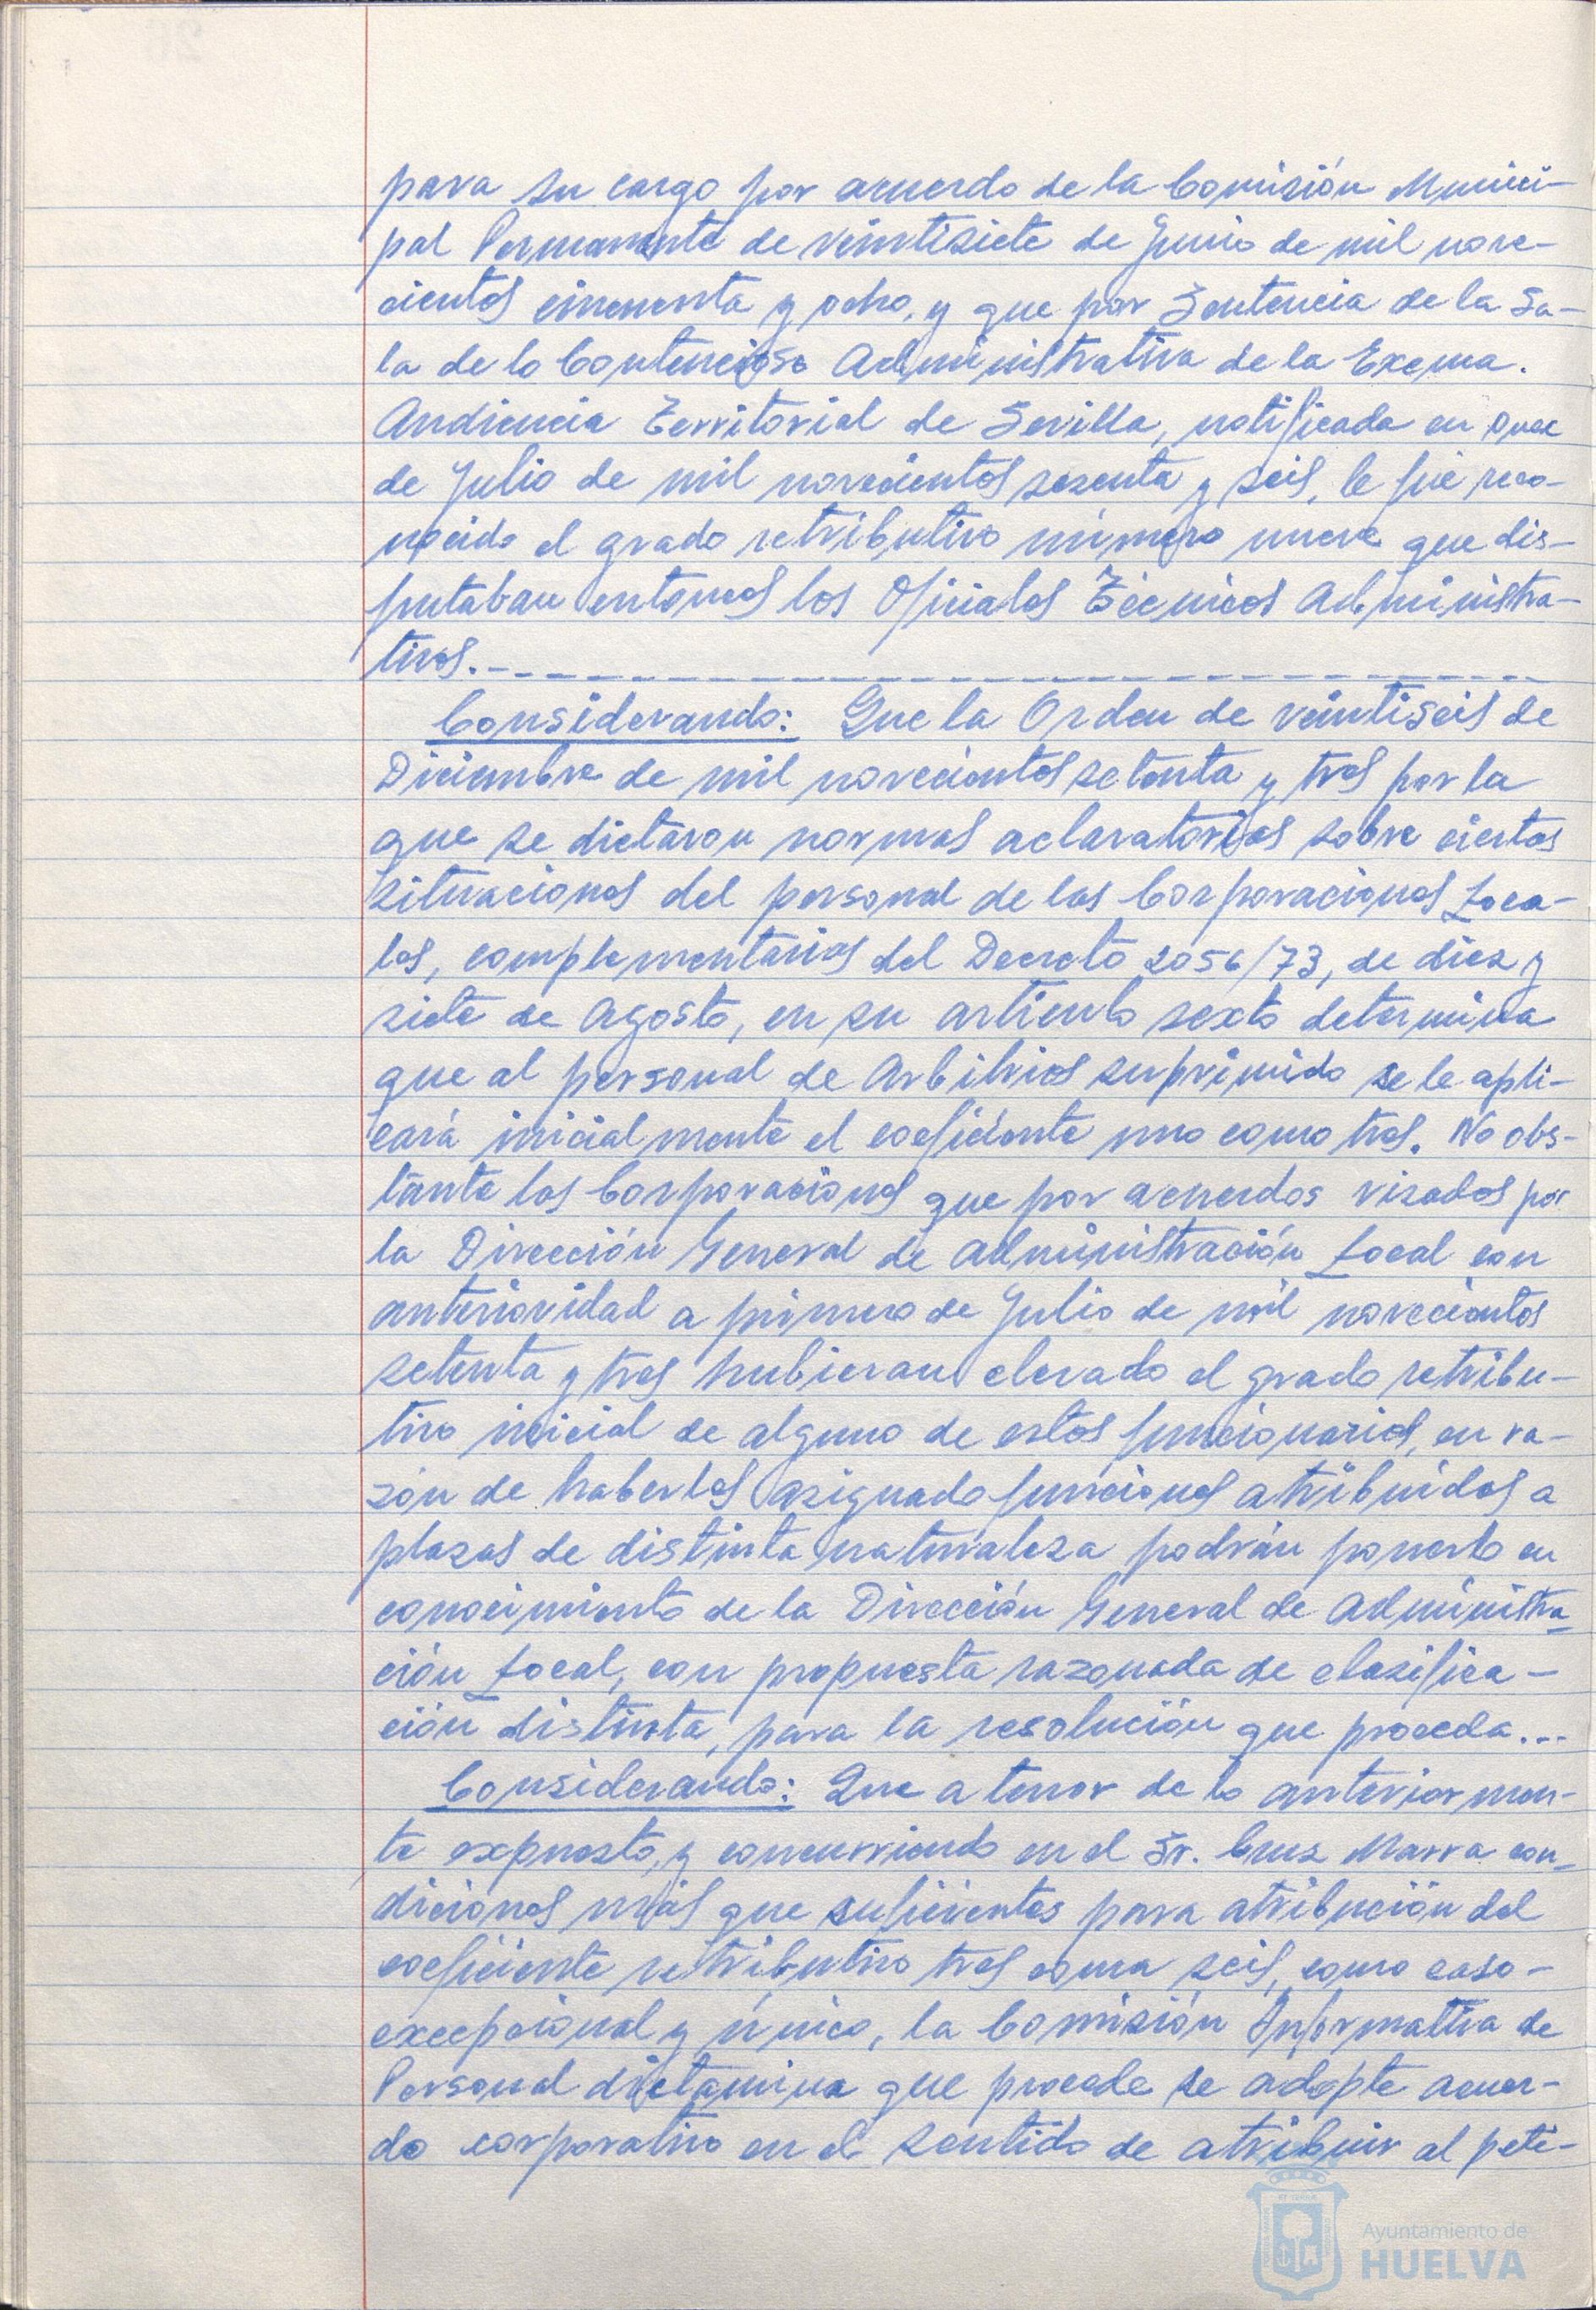 para su cargo por acuerdo de la Comisión Munici-
pal Permanente de veintisiete de Junio de mil nove-
cientos cincuenta y ocho, y que por Sentencia de la Sa-
la de lo Contencioso Administrativa de la Excma.
Audiencia Territorial de Sevilla, notificada en once
de Julio de mil novecientos sesenta y seis, le fue reco-
nocido el grado retributivo número nueve que dis-
putaban entonces los Oficiales Técnicos Administra-
tivos.-
Considerando: Que la Orden de veintiseis de
Diciembre de mil novecientos setenta y tres por la
que se dictaron normas aclaratorias sobre ciertas
situaciones del personal de las Corporaciones Loca-
les, complementarias del Decreto 2056/73, de diez y
siete de Agosto, en su artículo sexto determina
que al personal de Arbitrios suprimido se le apli-
cará inicialmente el coeficiente uno coma tres. No obs-
tante las Corporaciones que por acuerdos visados por
la Dirección General de Administración Local con
anterioridad a primero de Julio de mil novecientos
setenta y tres hubieran elevado el grado retribu-
tivo inicial de alguno de estos funcionarios, en ra-
zón de haberles asignado funciones atribuidas a
plazas de distinta naturaleza podrán ponerlo en
conocimiento de la Dirección General de Administra-
ción Local, con propuesta razonada de clasifica-
ción distinta, para la resolución que proceda...
Considerando: Que a tenor de lo anteriormen-
te expuesto, y concurriendo en el Sr. Cruz Marra con-
diciones más que suficientes para atribución del
coeficiente retributivo tres coma seis, como caso-
excepcional y único, la Comisión Informativa de
Personal dictamina que procede se adopte acuer-
do corporativo en el sentido de atribuir al peti-
Ayuntamiento de
HUELVA